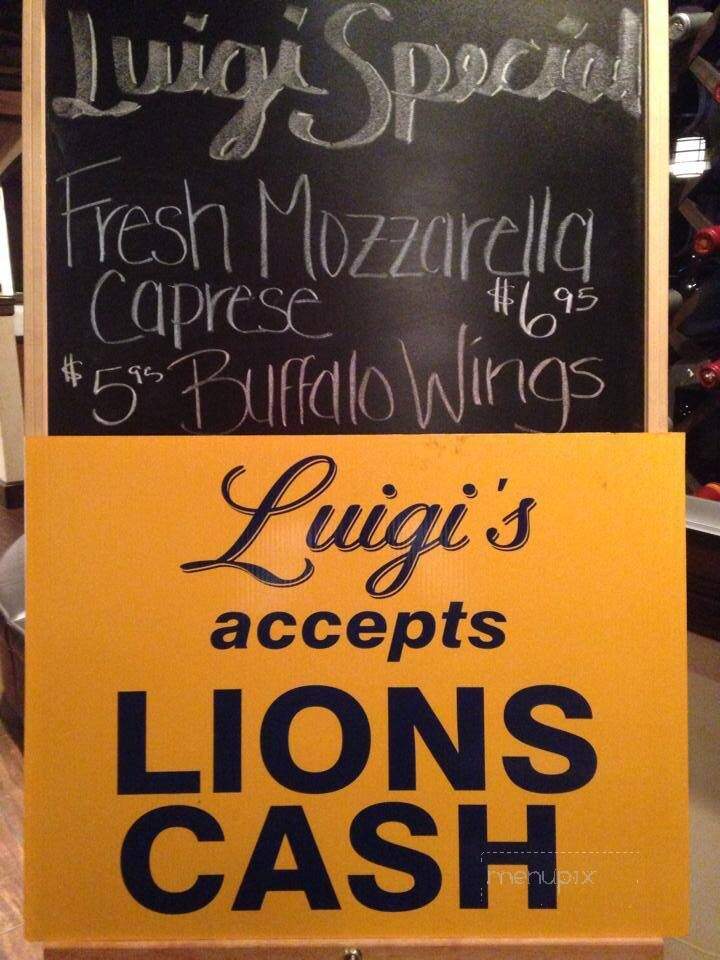 Luigi Special
Fresh Mozzarella
Caprese $6.95
$5.95 Buffalo Wings
Luigi's
accepts
LIONS
CASH
menupix